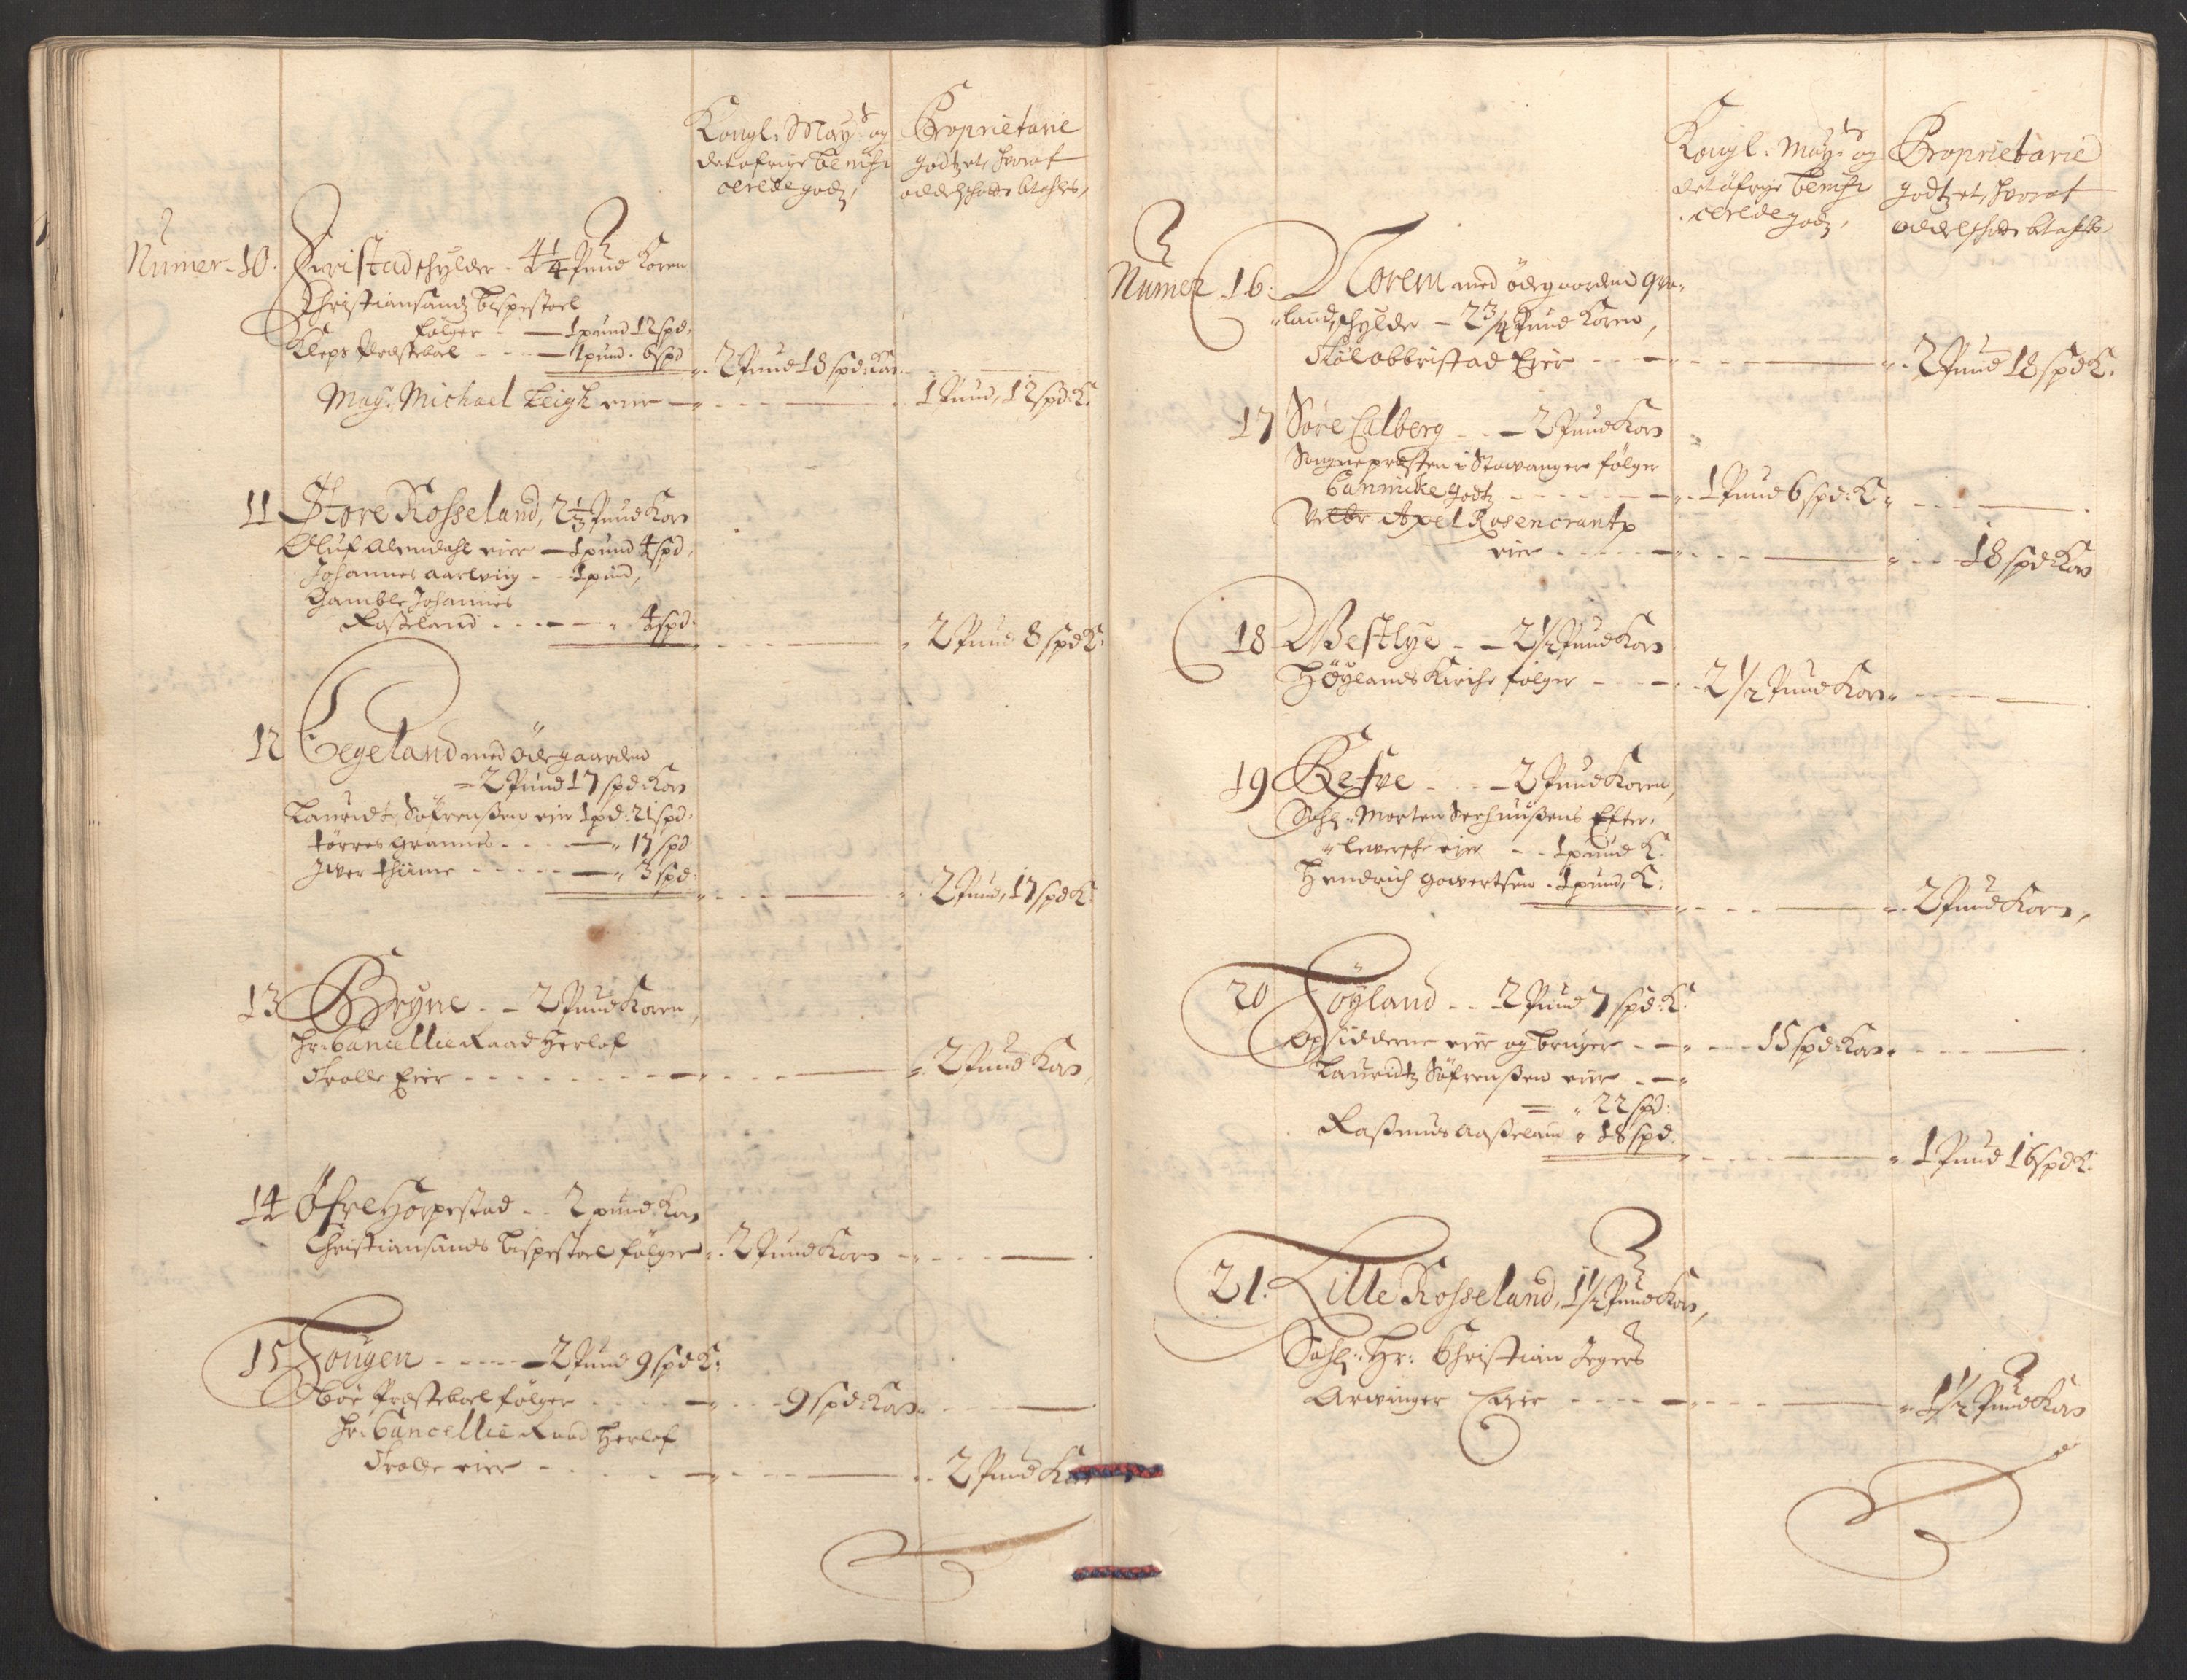 Kongl: May: og
det øfrige benifi
cerede godz,
Proprietarie
godtzet, hvoraf
oddelschatt betahles,
Numer 10. Friestad schylder - 4 1/4 Pund Koren
Christiansandz bispestoel
følger - - 1 pund 12 spd:
Kleps Præsteboel - - - 1 pund. 6 spd
2 Pund 18 spd: Korn
May: Michael Leigh eier - 1 Pund, 12 spd: K:
11 Store Rosseland, 2 1/3 Pund Korn
Oluf Alendahl eier - 1 pund 4 spd,
Johannes Aarwiig - - 1 pund,
Gamble Johannes
Rosseland - - - - 4 spd:
2 Pund 8 spd K:
12 Eegeland med Ødegaarden
- 2 Pund 17 spd: Korn
Lauridtz Søfrenssen eier 1 pd: 21 spd:
Torres Grannes - - - 17 spd
Iwer Thiime - - - - 3 spd:
2 Pund, 17 spd K:
13 Bryne - - 2 Pund Koren,
Hr: Cancellie Raad Herlof
Trolle Eier - - - - 2 Pund Korn,
14 Øfre Horpestad - - 2 pund Korn
Christiansands bispestoel følger - 2 Pund Korn
15 Fougen - - - - 2 Pund 9 spd K:
Boe Præsteboel følger - - - 9 spd: Korn
Hr: Cancellie Raad Herlof
Trolle eier - - - 2 Pund Korn
Kongl: May: og
det øfrige benifi
cerede godz,
Proprietarie
godtzet, hvoraf
oddelschatt betahles
Numer 16. Norem med ødegaarden Qva-
land, schylder - 2 3/4 Pund Koren,
Eier - - - 2 Pund 18 spd K:
17 Søre Calberg - - 2 Pund Korn
Sognepræsten i Stawanger følger
Cannicke godtz - - - - 1 Pund 6 spd: K
Velbr Axel Rosencrantz
eier - - - - 18 spd: Korn
18 Westlye - - 2 1/2 Pund Korn
Høylands Kirche følger - - - 2 1/2 Pund Korn
19 Refve - - - 2 Pund Koren,
Sahl: Morten Seehuussens Efter-
lewersche eier - - 1 pund K:
Hendrich Gowertsen - 1 pund, K:
2 Pund Korn,
20 Føyland - - 2 Pund 7 spd: K:
Opsidderne eier og bruger - - 15 spd: Korn
Lauridtz Søfrenssen eier - -
= 22 spd:
Rassmus Aasseland 18 spd.
1 Pund 16 spd K:
21. Lille Rosseland, 1 1/2 Pund Korn,
Sahl: Hr: Christian Jegers
Arwinger Eier - - - - 1 1/2 Pund Korn